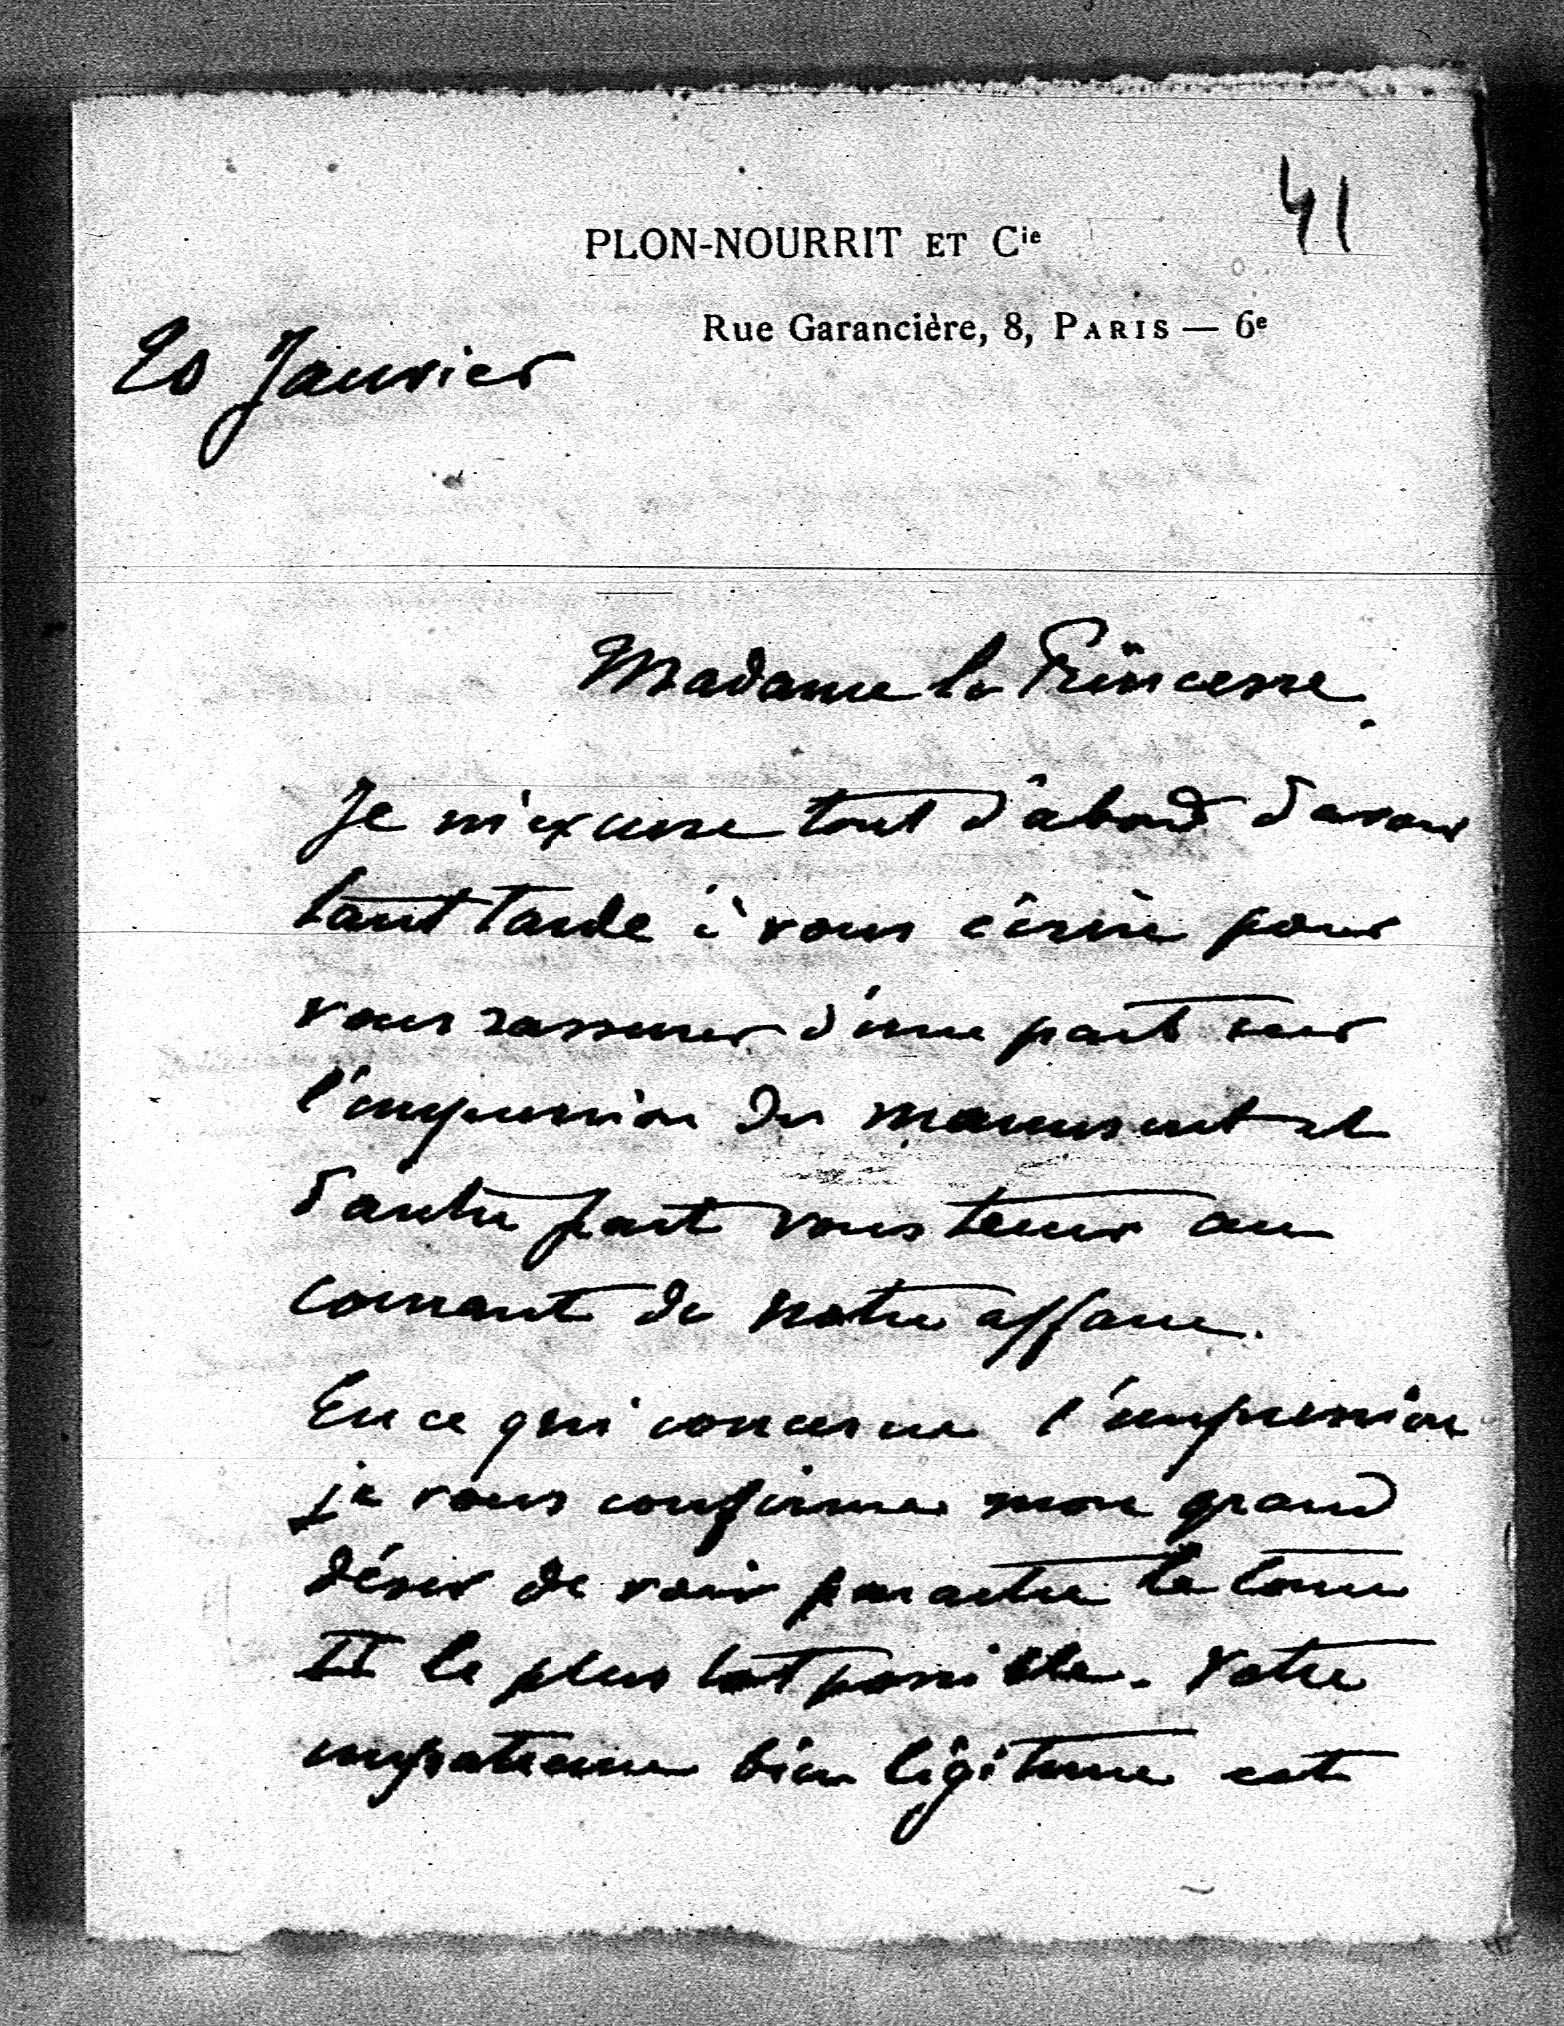 41
PLON-NOURRIT ET Cie
Rue Garancière, 8, PARIS — 6e
20 Janvier
Madame la Princesse,
Je m'excuse tout d'abord d'avoir
tant tardé à vous écrire pour
vous rassurer d'une part sur
l'impression du manuscrit et
d'autre part vous tenir au
courant de notre affaire.
En ce qui concerne l'impression
je vous confirme mon grand
désir de voir paraitre le tome
II le plus tot possible. Votre
impatience bien légitime est